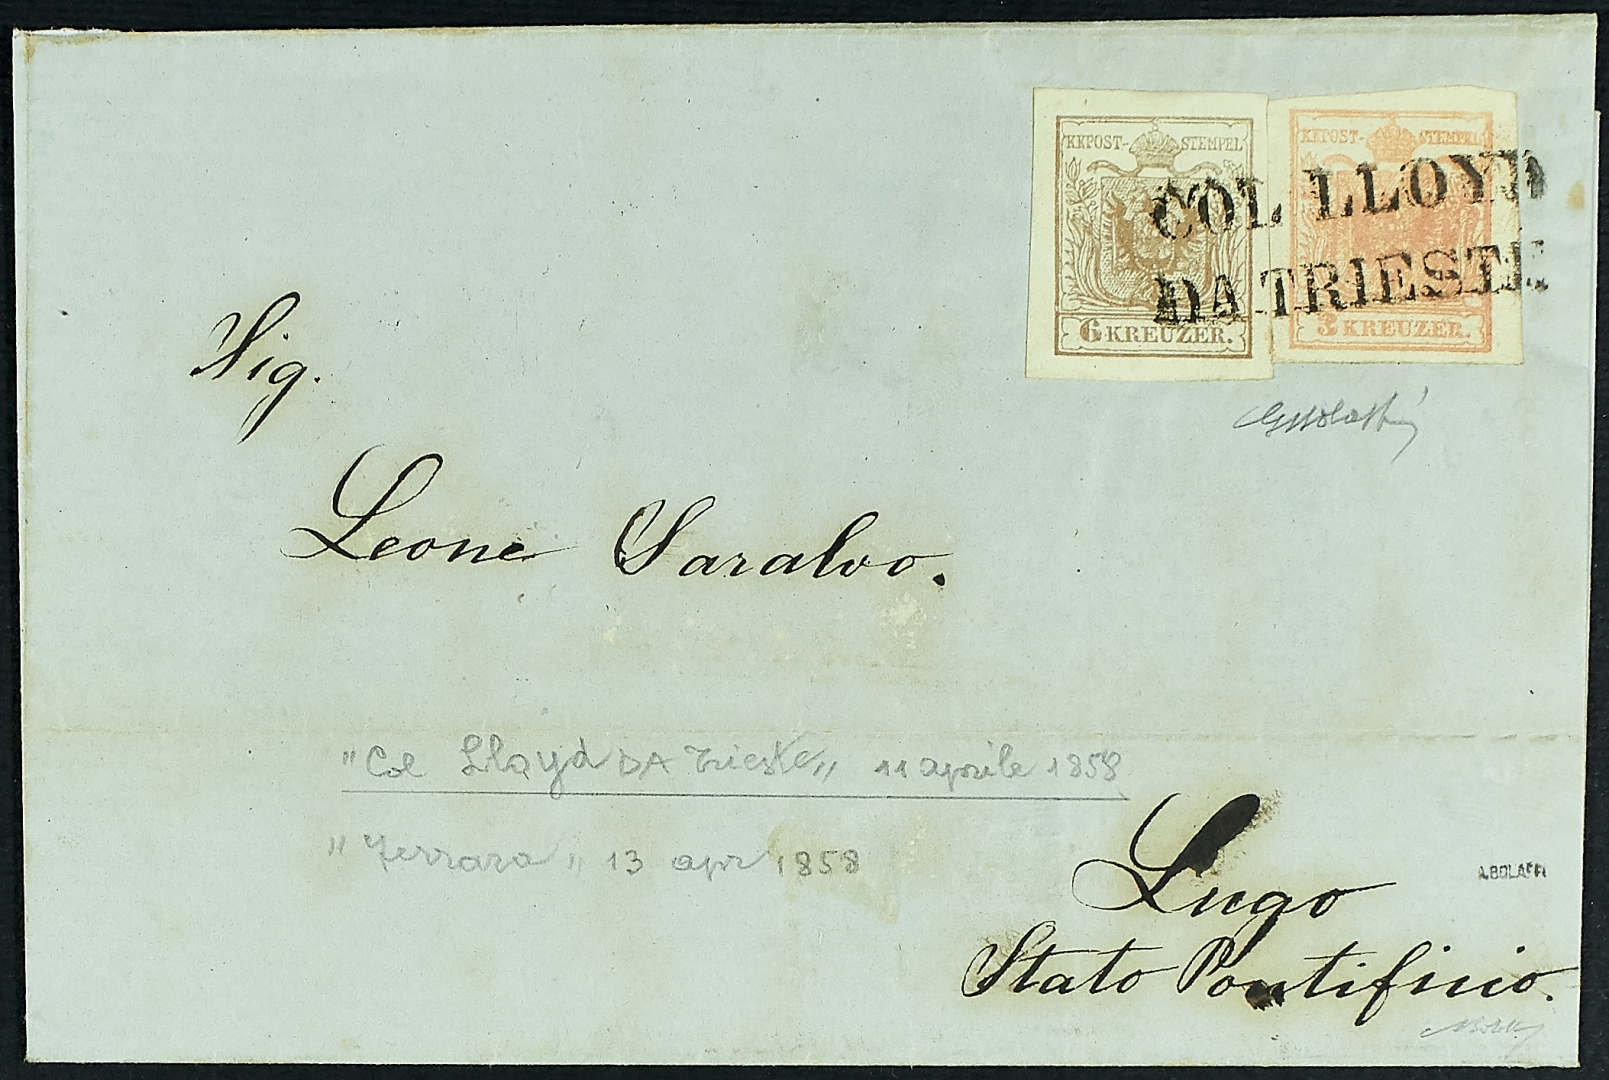 KKPOST-STEMPEL KKPOST-STEMPEL
COL LLOYD
DA TRIESTE
6 KREUZER. 3 KREUZER.
Sig.
Leone Saralvo.
"Col Lloyd DA Trieste" 11 aprile 1858
"Ferrara" 13 apr 1858
Lugo
A.BOLAFFI
Stato Pontificio.